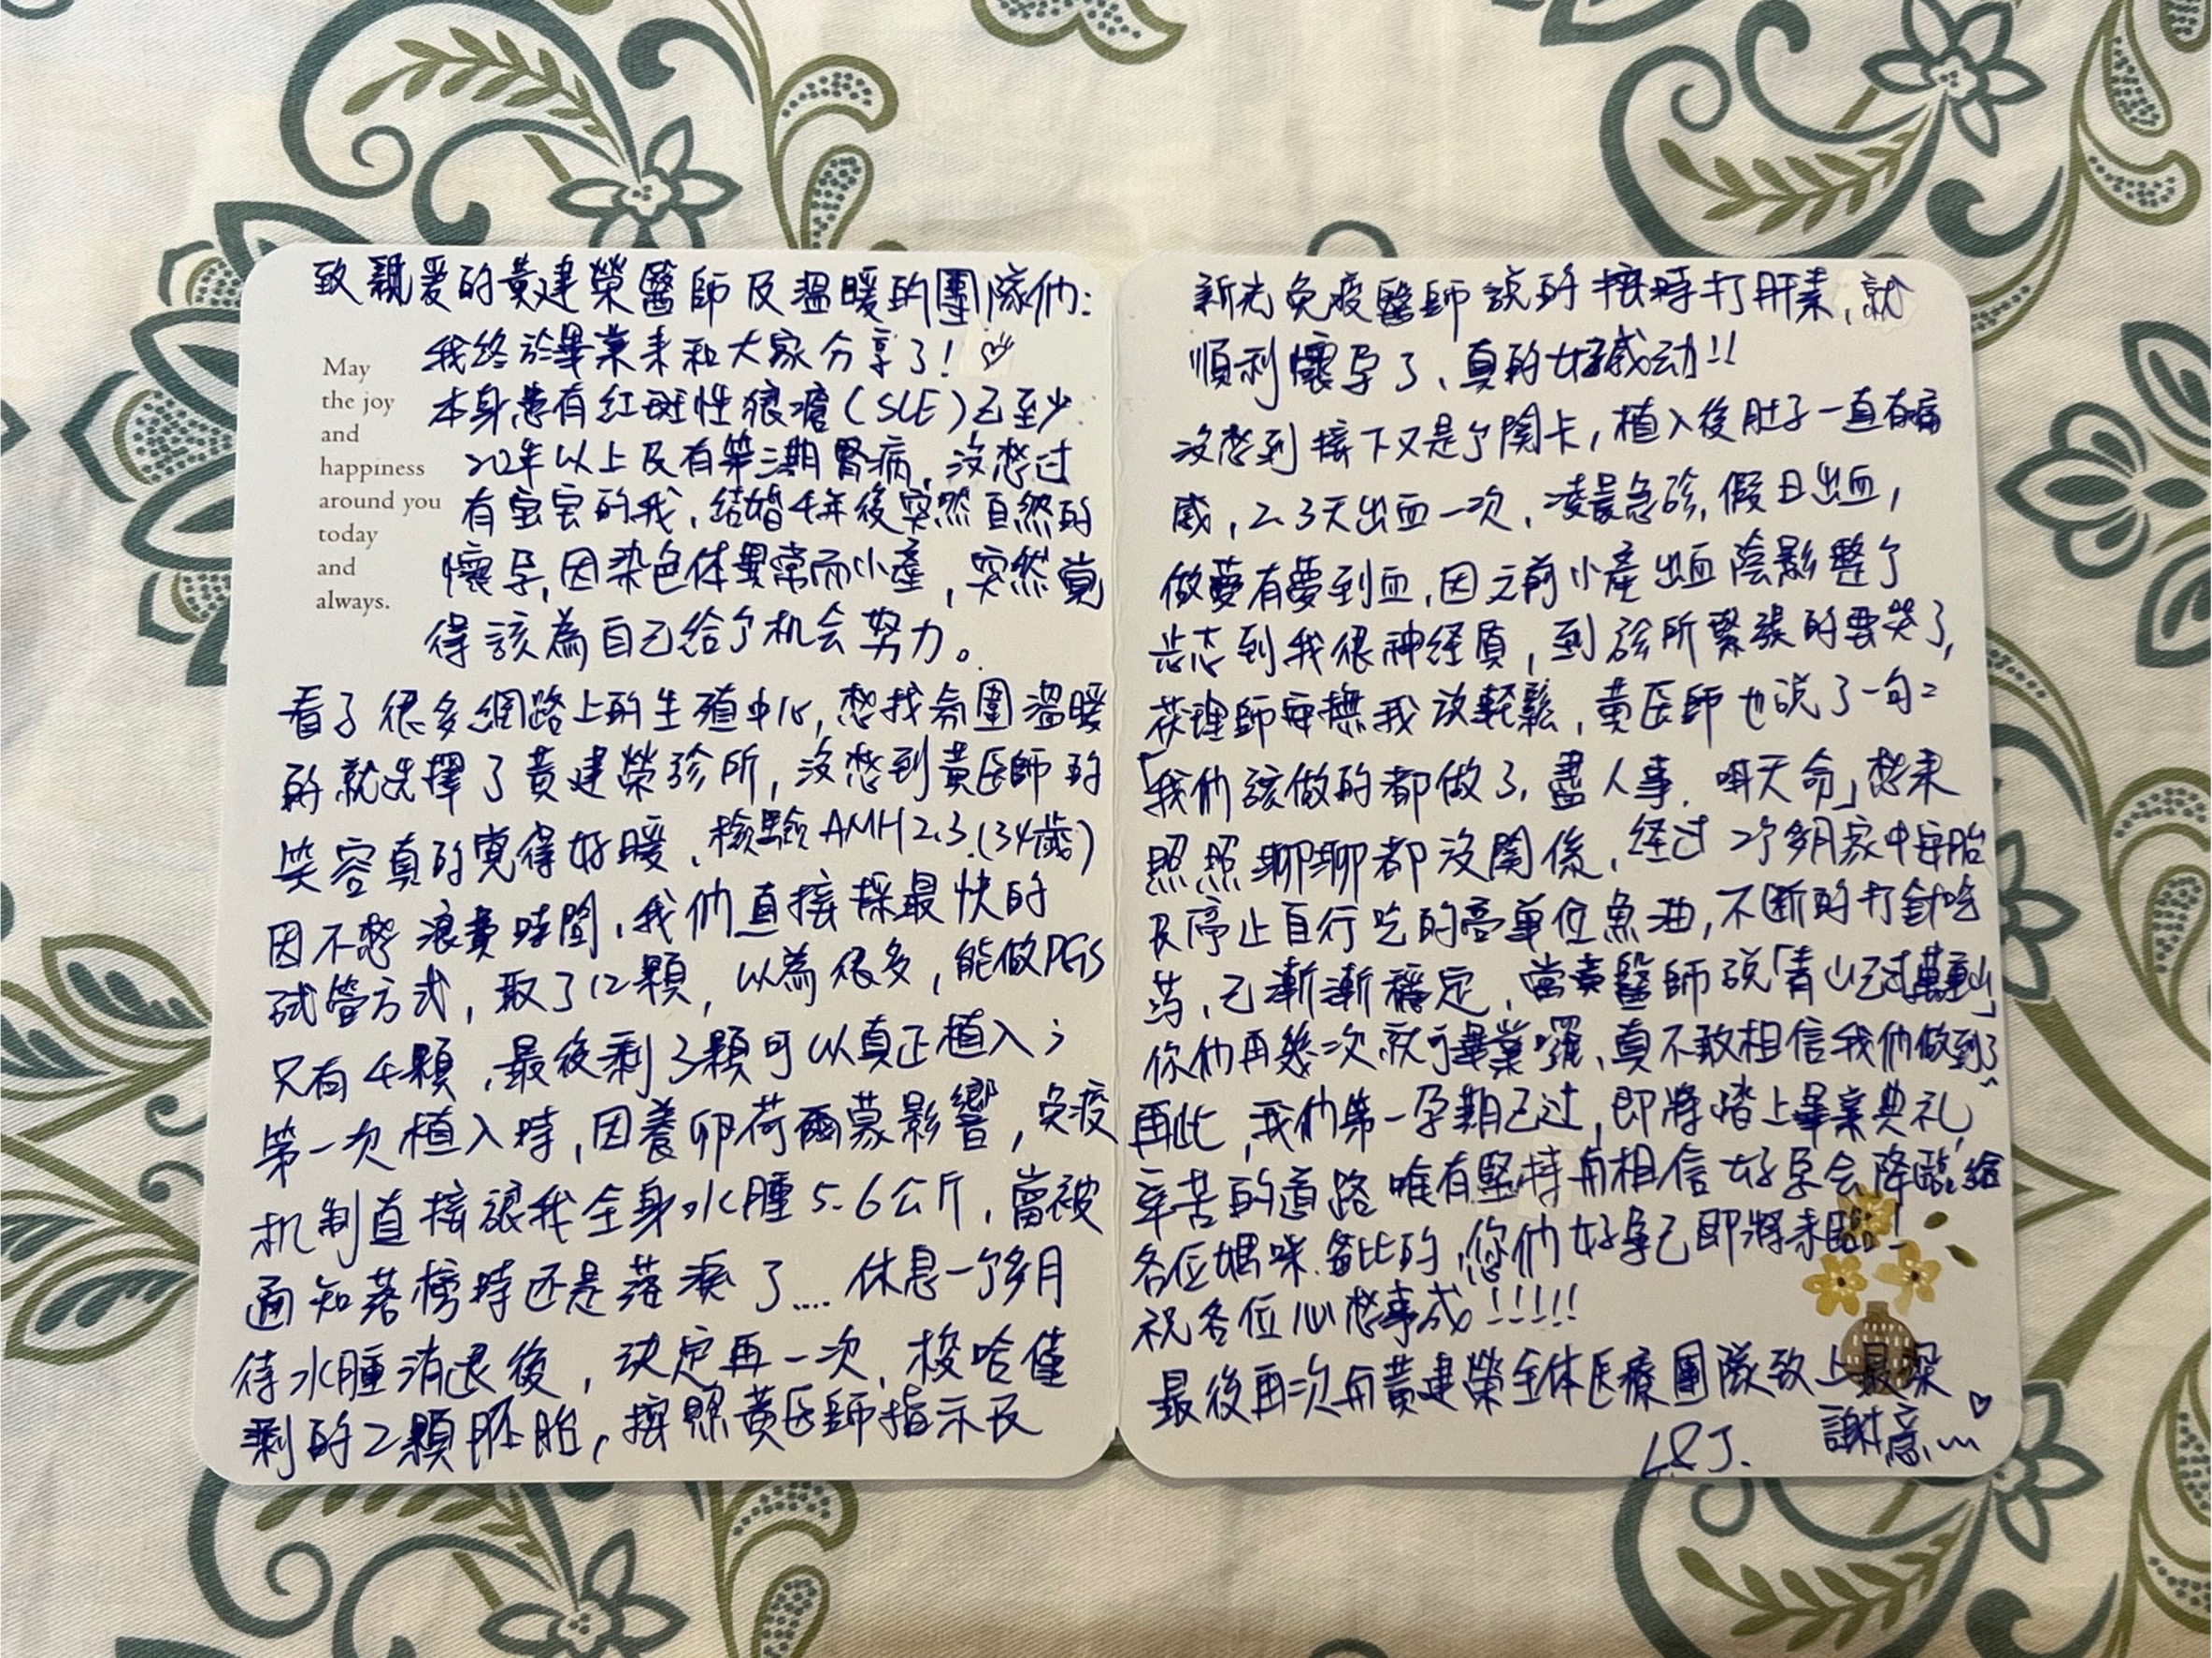 致親爱的黃建榮醫師及溫暖的團隊们:
我終於畢業來和大家分享了! ♡
May
the joy
and
happiness
around you
today
and
always.
本身患有红斑性狼瘡(SLE)已至少
20年以上及有第三期腎病,沒想过
有宝宝的我,結婚4年後突然自然的
懷孕,因染色体異常而小產,突然覺
得該為自己給个机会努力。
看了很多網路上的生殖中心,想找氛圍溫暖
的就选擇了黃建榮診所,沒想到黃医師的
笑容真的覺得好暖、檢驗AMH2.3.(34歲)
因不想浪費時間,我們直接採最快的
試管方式,取了12顆,以為很多,能做PGS
只有4顆,最後剩3顆可以真正植入;
第一次植入時,因養卵荷爾蒙影響,免疫
机制直接讓我全身水腫5-6公斤,當被
通知落榜時还是落淚了....休息一个多月
待水腫消退後,決定再一次,梭哈僅
剩的2顆胚胎,按照黃医師指示及
新光免疫醫師說的按時打肝素,就
順利懷孕了、真的好感动!!
沒想到接下又是个関卡,植入後肚子一直有痛
感,2.3天出血一次,凌晨急診,假日出血,
做夢有夢到血,因之前小產出血陰影整个
忐忑到我很神经質,到診所緊張的要哭了,
護理師安撫我放輕鬆,黃医師也說了一句:
「我們該做的都做了,盡人事.听天命」想來
照照聊聊都沒関係,经过2个多月家中安胎
及停止自行吃的高單位魚油,不断的打針吃
药,已漸漸穩定,當黃醫師說「青山已过萬重山」
你們再幾次就可畢業囉、真不敢相信我們做到了~
再此,我們第一孕期已过,即將踏上畢業典礼,
辛苦的道路唯有堅持有相信好孕会降臨給
各位媽咪.爸比的,您們好孕已即將來臨!
祝各位心想事成!!!!!
最後再次向黃建榮全体医療團隊致上最深
謝意~ ♡
L&J.